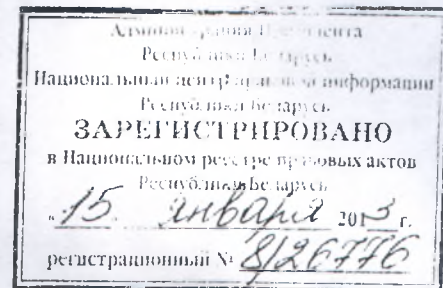 Администрация Президента
Республики Беларусь
Национальный центр правовой информации
Республики Беларусь
ЗАРЕГИСТРИРОВАНО
в Национальном реестре правовых актов
Республики Беларусь
"15" января 2013 г.
регистрационный № 8/26776